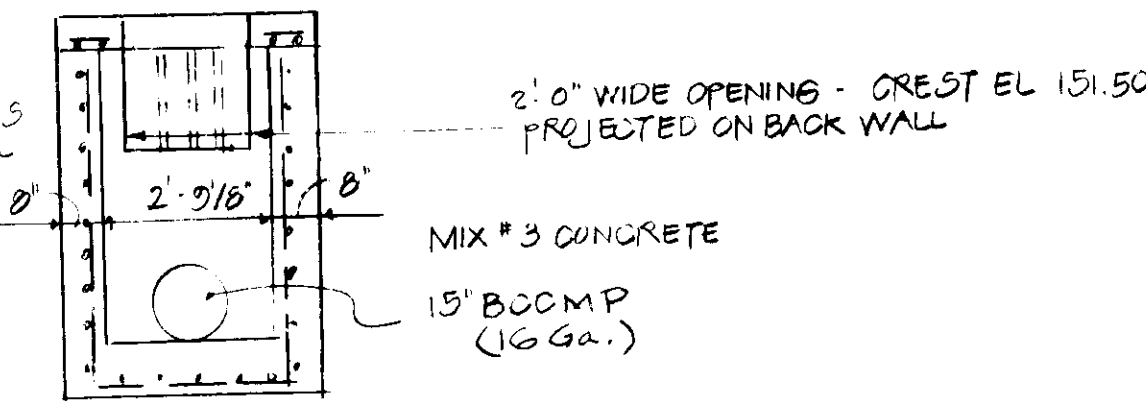 2'-0" WIDE OPENING - CREST EL 151.50
PROJECTED ON BACK WALL
S
8"
2'-9 1/8"
8"
MIX #3 CONCRETE
15" BCCMP
(16 Ga.)